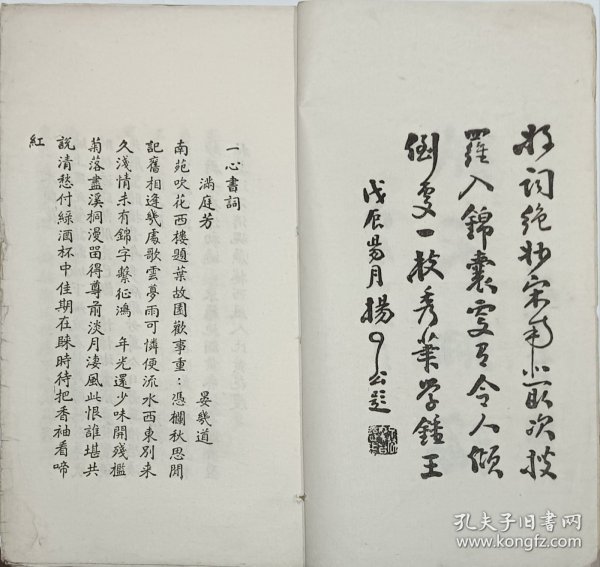 好词绝妙宋南北取次搜
羅入錦囊令人傾
倒處一枝秀筆學鍾王
戊辰易月揚公題
一心書詞
滿庭芳 晏幾道
南苑吹花西樓題葉故園歡事重:憑欄秋思閒
記舊相逢幾處歌雲夢雨可憐便流水西東別來
久淺情未有錦字繫征鴻 年光還少味開殘檻
菊落盡溪桐漫留得尊前淡月淒風此恨誰堪共
說清愁付綠酒杯中佳期在睞時待把香袖看啼
紅
孔夫子旧书网
www.kongfz.com